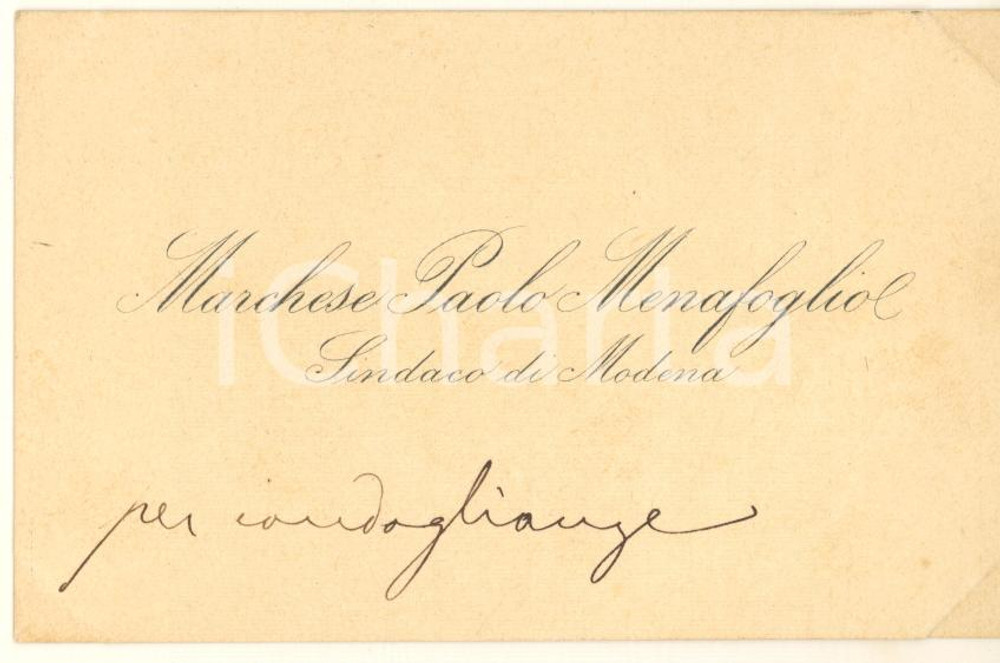 Marchese Paolo Menafoglio
Sindaco di Modena
per condoglianze
iCharta